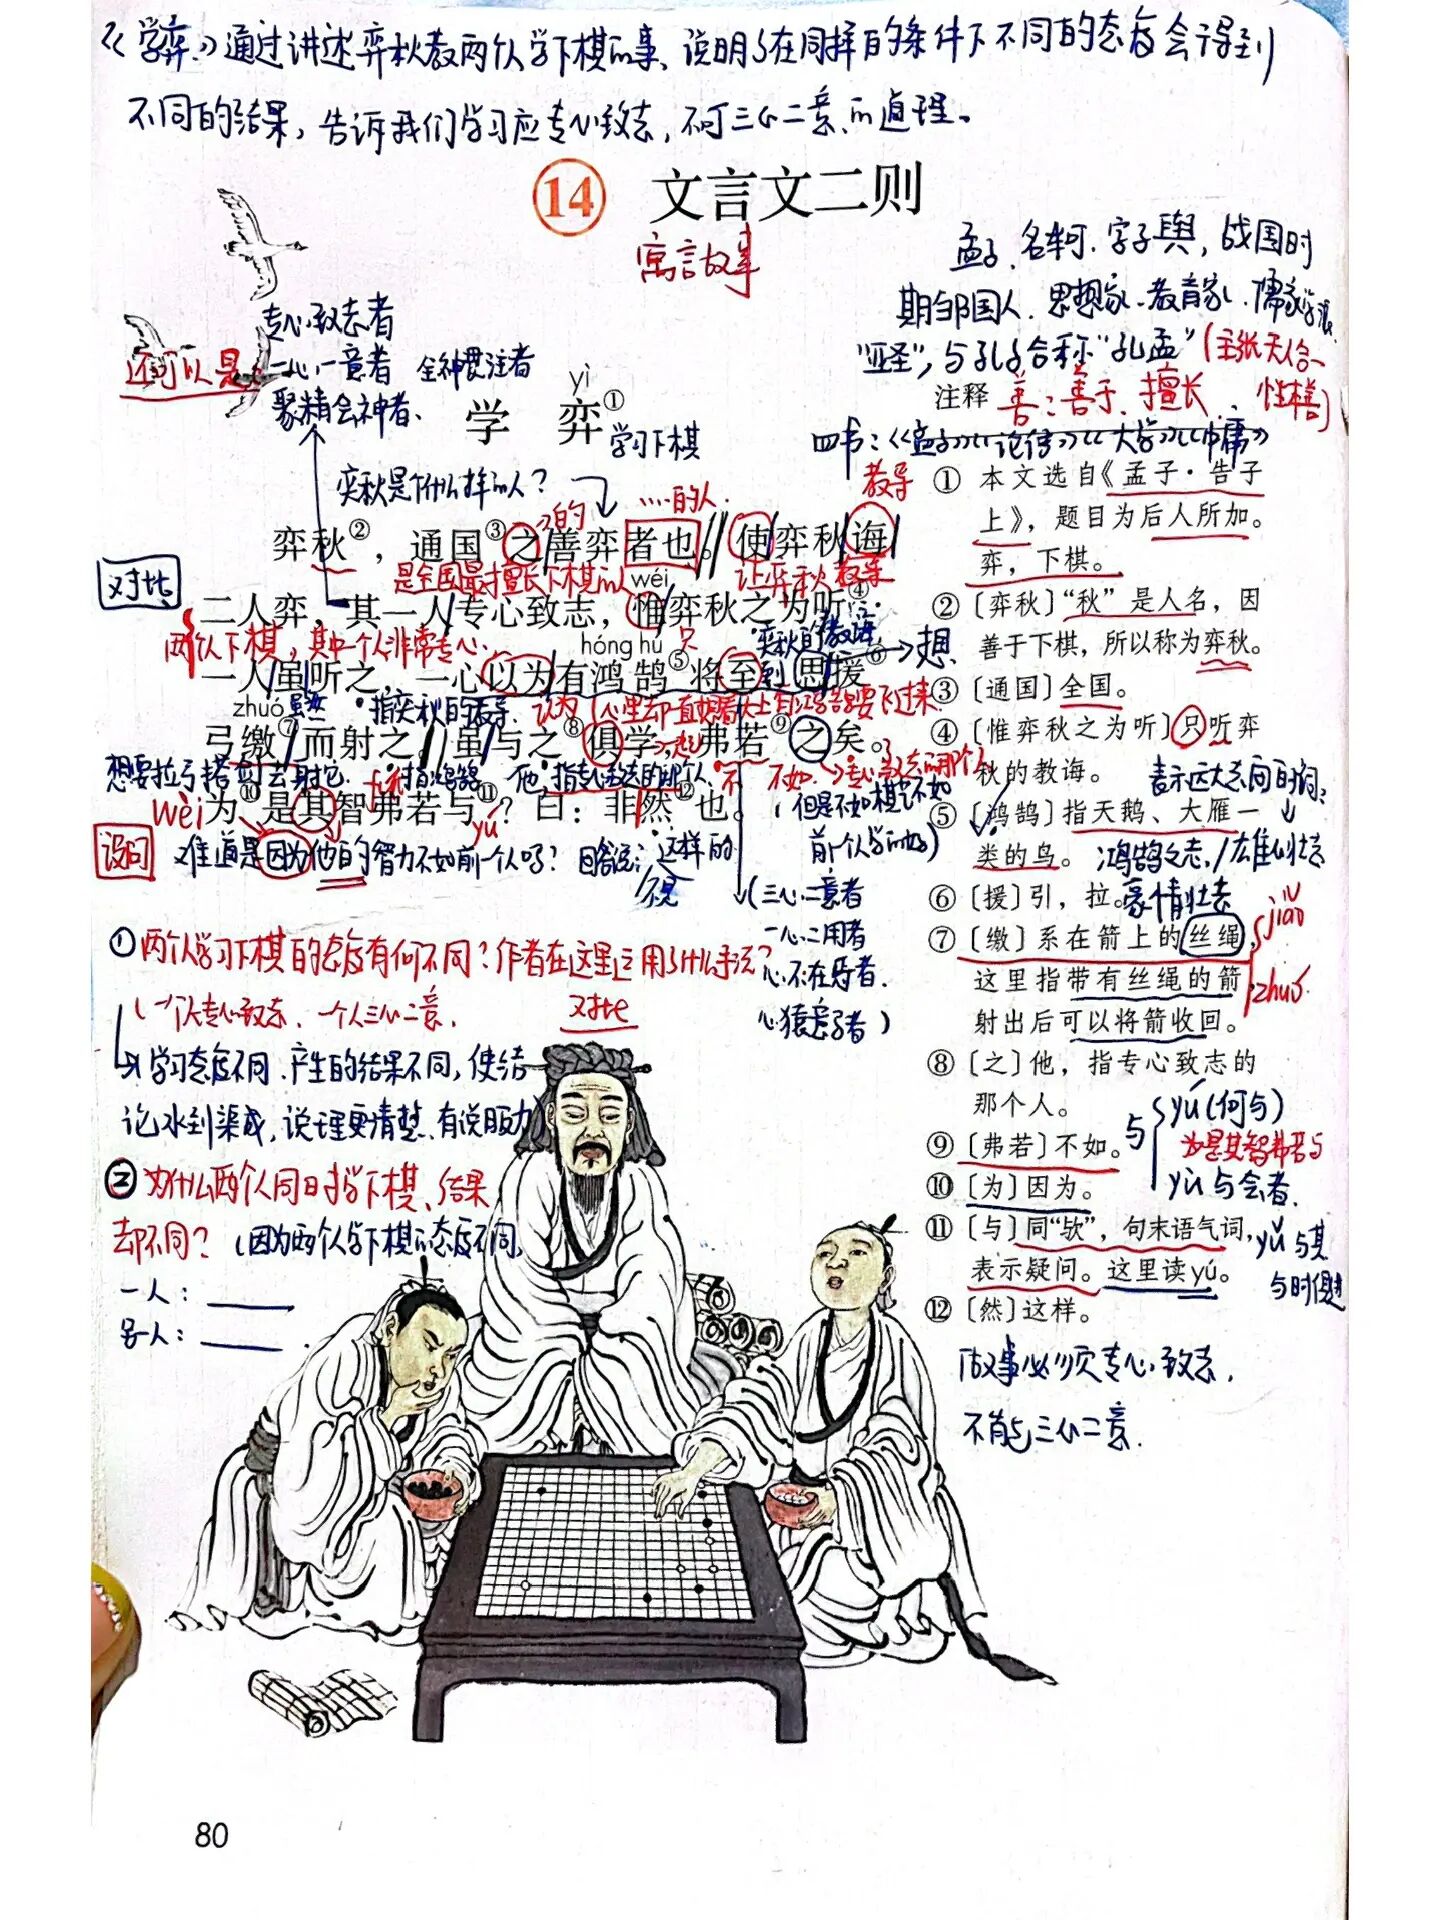 《学弈》通过讲述弈秋教两个人学下棋的事、说明了在同样的条件下不同的态度会得到
不同的结果，告诉我们学习应专心致志，不可三心二意的道理。
14 文言文二则
寓言故事
孟子、名轲、字子舆，战国时
期邹国人、思想家、教育家、儒家学派
"亚圣"，与孔子合称"孔孟"（主张天人合一
性本善）
还可以是：
专心致志者
一心一意者 全神贯注者
聚精会神者、
yì
学 弈①
学习下棋
注释 善：善于、擅长
四书：《孟子》《论语》《大学》《中庸》
弈秋是个什么样的人？
……的人
教导
的
弈秋②，通国③之善弈者也。使弈秋诲
是全国最擅长下棋的人
让弈秋教导
wéi
对比
二人弈，其一人专心致志，惟弈秋之为听④；
两个人下棋，其中一个人非常专心、
只
弈秋的教诲
hóng hú
一人虽听之，一心以为有鸿鹄⑤将至，思援⑥
到
→想
zhuó
虽然
指弈秋的教导、
认为（心里却一直想着天上有鸿鹄要飞过来
弓缴⑦而射之。虽与之⑧俱学，弗若⑨之矣。
一起
想要拉弓搭箭去射它
指鸿鹄
他，指专心致志的那个人
不
不如
→专心致志的那个人
wèi
为⑩是其智弗若与⑪？曰：非然⑫也。
yú
（但是不如棋艺不如
前一个人学的好）
设问
难道是因为他的智力不如前一个人吗？回答说：
这样的
不是
（三心二意者
一心二用者
心不在焉者、
心猿意马者）
①两个人学习下棋的态度有何不同？作者在这里运用了什么手法？
（一个人专心致志、一个人三心二意、
对比
→学习态度不同、产生的结果不同，使结
论水到渠成，说理更清楚、有说服力）
②为什么两个人同时学下棋、结果
却不同？（因为两个人学下棋的态度不同，
一人：
另一人：
① 本文选自《孟子·告子
上》，题目为后人所加。
弈，下棋。
②〔弈秋〕"秋"是人名，因
善于下棋，所以称为弈秋。
③〔通国〕全国。
④〔惟弈秋之为听〕只听弈
秋的教诲。
表示远大志向的词：
⑤〔鸿鹄〕指天鹅、大雁一
类的鸟。
鸿鹄之志，/雄心壮志
⑥〔援〕引，拉。
豪情壮志
⑦〔缴〕系在箭上的丝绳，
这里指带有丝绳的箭，
射出后可以将箭收回。
jiǎo
zhuó
⑧〔之〕他，指专心致志的
那个人。
⑨〔弗若〕不如。
⑩〔为〕因为。
⑪〔与〕同"欤"，句末语气词，
表示疑问。这里读yú。
⑫〔然〕这样。
与
yú（何与）
为是其智弗若与
yù 与会者、
yǔ 与其
与时俱进
做事必须专心致志，
不能三心二意、
80